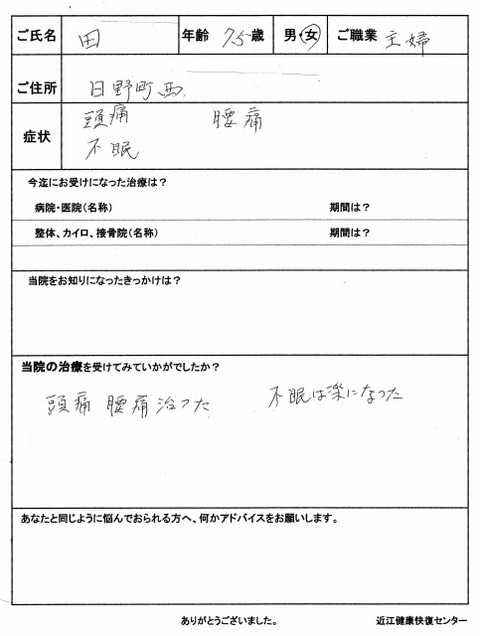 ご氏名 田 年齢 75歳 男・女 ご職業 主婦
ご住所 日野町西
症状 頭痛 腰痛
不眠
今迄にお受けになった治療は？
病院・医院（名称） 期間は？
整体、カイロ、接骨院（名称） 期間は？
当院をお知りになったきっかけは？
当院の治療を受けてみていかがでしたか？
頭痛 腰痛治った 不眠は楽になった
あなたと同じように悩んでおられる方へ、何かアドバイスをお願いします。
ありがとうございました。 近江健康快復センター